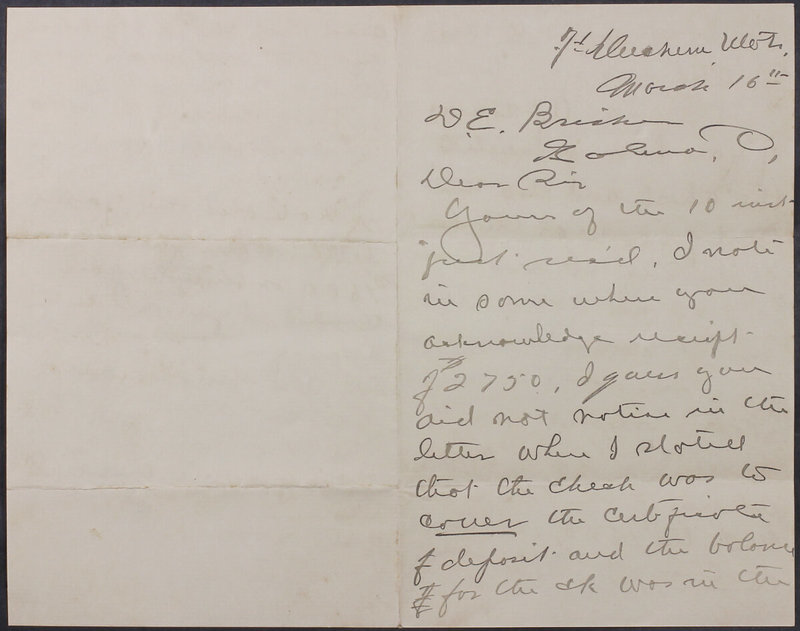 Ft Meckeni Mots.
March 16th
D.E. Brisher
Galena, O,
Dear Sir
Yours of the 10 inst
just rec'd, I note
in some where you
acknowledge receipt
of 2750, I guess you
did not notice in the
letter where I stated
that the check was to
cover the certficate
of deposit and the balance
for the ck was in the